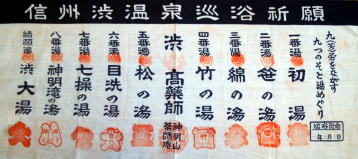 信州渋温泉巡浴祈願
九(苦)労をながす
九つのそっと湯めぐり
一番湯
初湯
二番湯
笹の湯
三番湯
綿の湯
四番湯
竹の湯
神明山
薬師庵
渋高薬師
五番湯
松の湯
六番湯
目洗の湯
七番湯
七操の湯
八番湯
神明滝の湯
結願湯
渋大湯
年月日